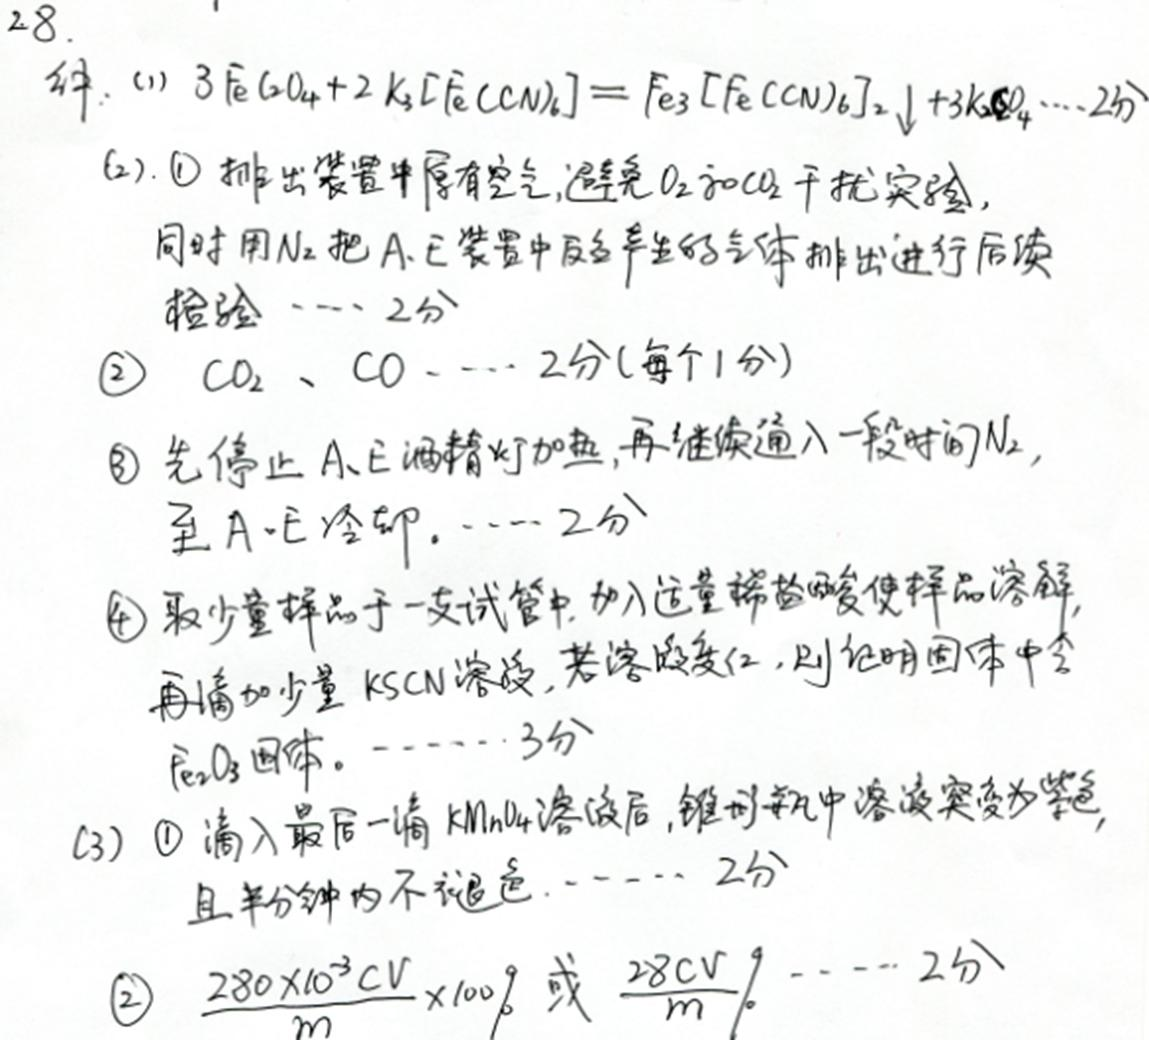 28.
解:(1) 3FeC2O4+2K3[Fe(CN)6]=Fe3[Fe(CN)6]2↓+3K2C2O4····2分
(2).① 排出装置中原有空气,避免O2和CO2干扰实验,
同时用N2把A、E装置中反应产生的气体排出进行后续
检验 ···· 2分
② CO2、CO ····· 2分(每个1分)
③ 先停止A、E酒精灯加热,再继续通入一段时间N2,
至A、E冷却。····· 2分
④ 取少量样品于一支试管中,加入适量稀盐酸使样品溶解,
再滴加少量KSCN溶液,若溶液变红,则证明固体中含
Fe2O3固体。······· 3分
(3) ① 滴入最后一滴KMnO4溶液后,锥形瓶中溶液突变为紫色,
且半分钟内不褪色.······ 2分
② 280×10⁻³CV/m ×100% 或 28CV/m % ····· 2分